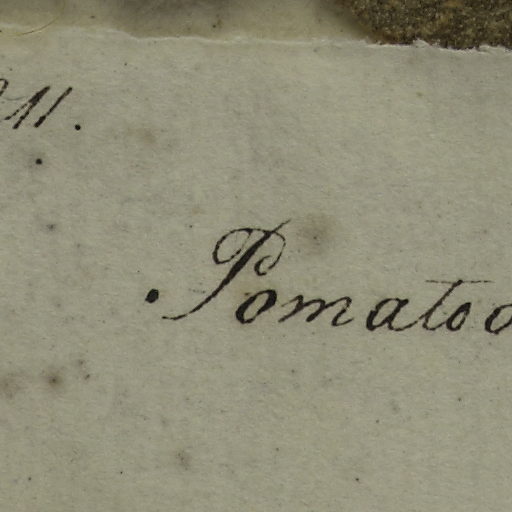 11.
Pomatoo